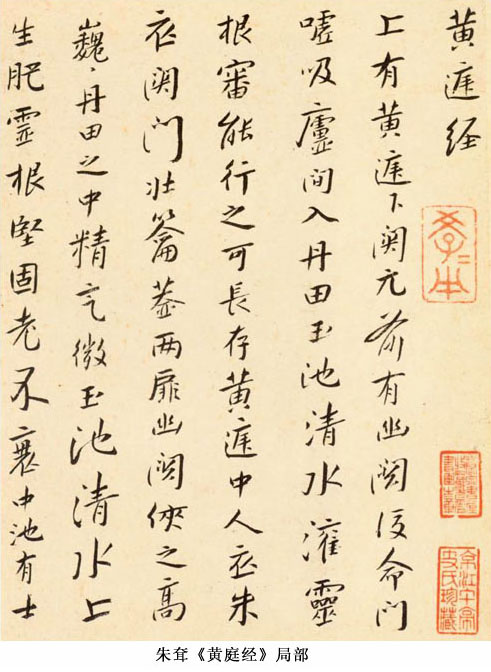 黄庭经
上有黄庭下関元前有幽闕後命門
嘘吸廬间入丹田玉池清水灌靈
根審能行之可長存黄庭中人衣朱
衣関门壮籥蓋两扉幽闕俠之高
巍〻丹田之中精气微玉池清水上
生肥靈根堅固老不衰中池有士
朱耷《黄庭经》局部